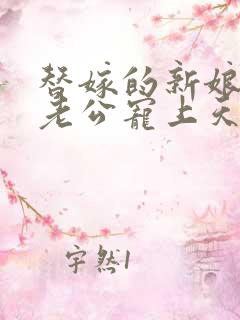 替嫁的新娘
老公宠上天
宇然1